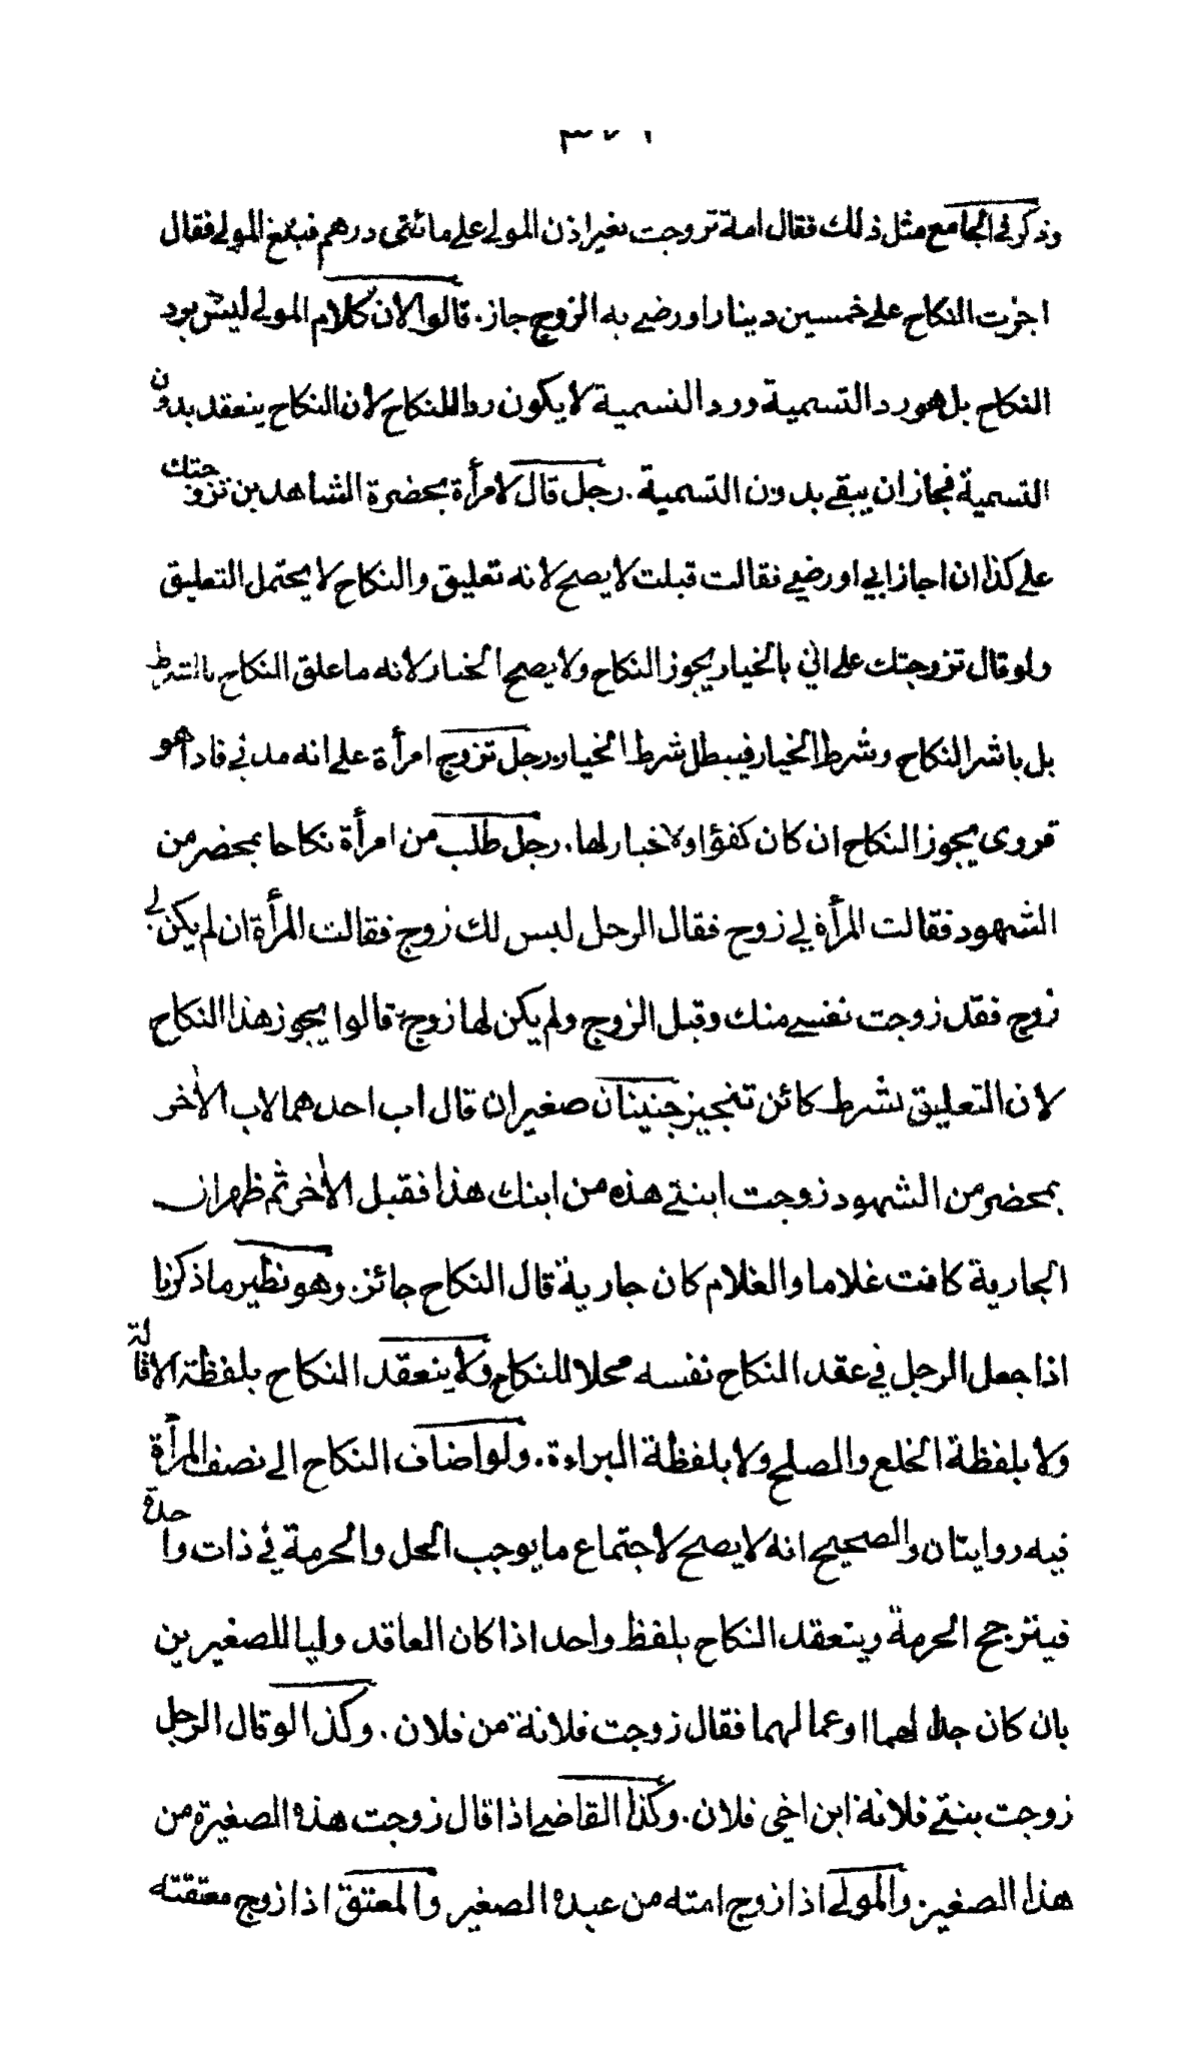 ٣٧١
وذكر في الجامع مثل ذلك فقال امة تزوجت بغير اذن المولى على مائتي درهم فبلغ المولى فقال
اجزت النكاح على خمسين دينارا ورضي به الزوج جاز. قالوا لان كلام المولى ليس برد
النكاح بل هو رد التسمية ورد التسمية لا يكون ردا للنكاح لان النكاح ينعقد بدون
التسمية فجاز ان يبقى بدون التسمية. رجل قال لامرأة بحضرة الشاهدين تزوجتك
على كذا ان اجاز ابي او رضي فقالت قبلت لا يصح لانه تعليق والنكاح لا يحتمل التعليق
ولو قال تزوجتك على اني بالخيار يجوز النكاح ولا يصح الخيار لانه ما علق النكاح بالشرط
بل باشر النكاح وشرط الخيار فيبطل شرط الخيار. رجل تزوج امرأة على انه مدني فاذا هو
قروى يجوز النكاح ان كان كفؤا ولا خيار لها. رجل طلب من امرأة نكاحا بمحضر من
الشهود فقالت المرأة لي زوج فقال الرجل ليس لك زوج فقالت المرأة ان لم يكن لي
زوج فقد زوجت نفسي منك وقبل الزوج ولم يكن لها زوج قالوا يجوز هذا النكاح
لان التعليق بشرط كائن تنجيز جنينان صغيران قال اب احدهما لاب الآخر
بمحضر من الشهود زوجت ابنتي هذه من ابنك هذا فقبل الآخر ثم ظهر ان
الجارية كانت غلاما والغلام كان جارية قال النكاح جائز. وهو نظير ما ذكرنا
اذا جعل الرجل في عقد النكاح نفسه محلا للنكاح ولا ينعقد النكاح بلفظة الاقالة
ولا بلفظة الخلع والصلح ولا بلفظة البراءة. ولو اضاف النكاح الى نصف المرأة
فيه روايتان والصحيح انه لا يصح لاجتماع ما يوجب الحل والحرمة في ذات واحدة
فيترجح الحرمة وينعقد النكاح بلفظ واحد اذا كان العاقد وليا للصغيرين
بان كان جدا لهما او عما لهما فقال زوجت فلانة من فلان. وكذا لو قال الرجل
زوجت بنتي فلانة ابن اخي فلان. وكذا القاضي اذا قال زوجت هذه الصغيرة من
هذا الصغير. والمولى اذا زوج امته من عبده الصغير والمعتق اذا زوج معتقته